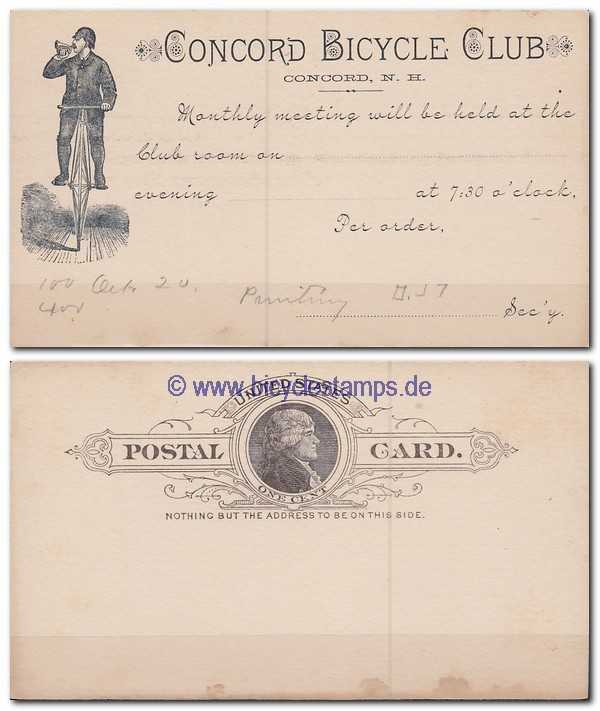 CONCORD BICYCLE CLUB
CONCORD, N. H.
Monthly meeting will be held at the
Club room on
evening at 7:30 o'clock,
Per order,
100 Oct. 20.
400
Printing
Sec'y.
© www.bicyclestamps.de
UNITED STATES
POSTAL CARD.
ONE CENT
NOTHING BUT THE ADDRESS TO BE ON THIS SIDE.